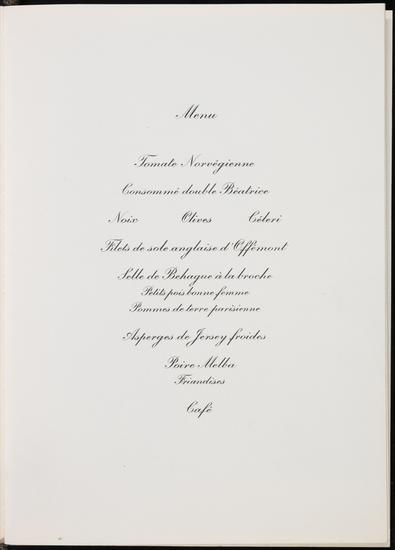 Menu
Tomate Norvégienne
Consommé double Béatrice
Noix Olives Céleri
Filets de sole anglaise d'Offémont
Selle de Behague à la broche
Petits pois bonne femme
Pommes de terre parisienne
Asperges de Jersey froides
Poire Melba
Friandises
Café